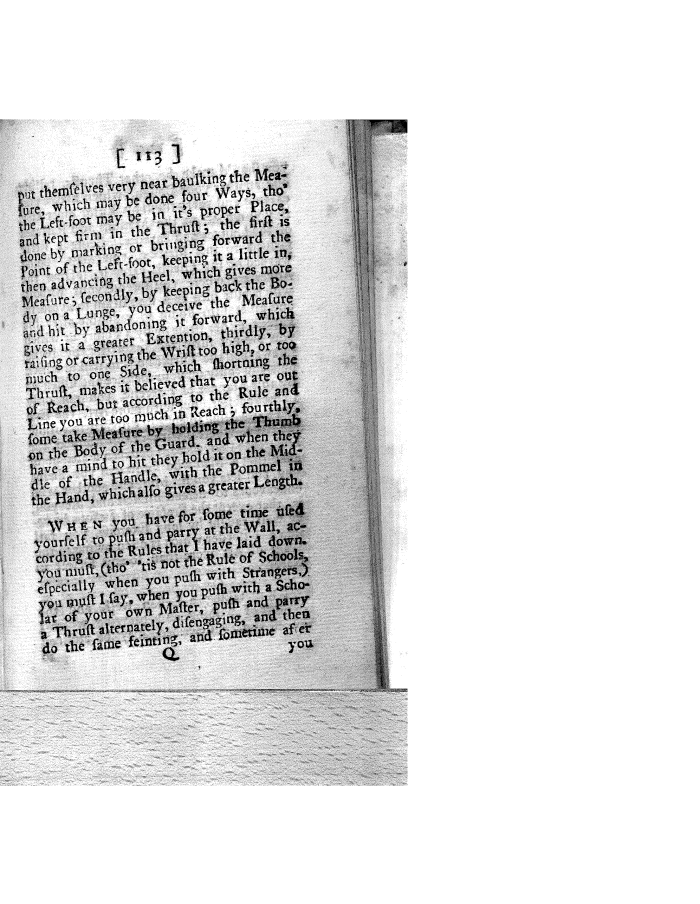 [ 113 ]
put themſelves very near baulking the Mea-
ſure, which may be done four Ways, tho'
the Left-foot may be in it's proper Place,
and kept firm in the Thruſt; the firſt is
done by marking or bringing forward the
Point of the Left-foot, keeping it a little in,
then advancing the Heel, which gives more
Meaſure; ſecondly, by keeping back the Bo-
dy on a Lunge, you deceive the Meaſure
and hit by abandoning it forward, which
gives it a greater Extention, thirdly, by
raiſing or carrying the Wriſt too high, or too
much to one Side, which ſhortning the
Thruſt, makes it believed that you are out
of Reach, but according to the Rule and
Line you are too much in Reach; fourthly,
ſome take Meaſure by holding the Thumb
on the Body of the Guard, and when they
have a mind to hit they hold it on the Mid-
dle of the Handle, with the Pommel in
the Hand, which alſo gives a greater Length.
WHEN you have for ſome time uſed
yourſelf to puſh and parry at the Wall, ac-
cording to the Rules that I have laid down.
you muſt, (tho' 'tis not the Rule of Schools,
eſpecially when you puſh with Strangers,)
you muſt I ſay, when you puſh with a Scho-
lar of your own Maſter, puſh and parry
a Thruſt alternately, diſengaging, and then
do the ſame feinting, and ſometime af er
Q you